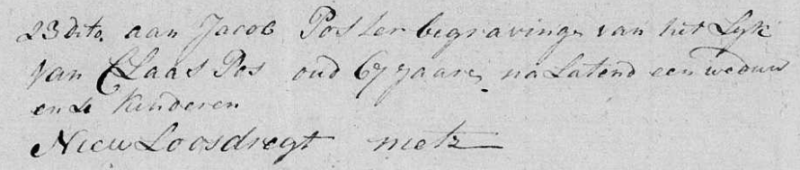 23 dito aan Jacob Pos ter begraving van het Lijk
van Claas Pos oud 67 jaare nalatend een weduw
en 4 kinderen
Nieu Loosdregt niets